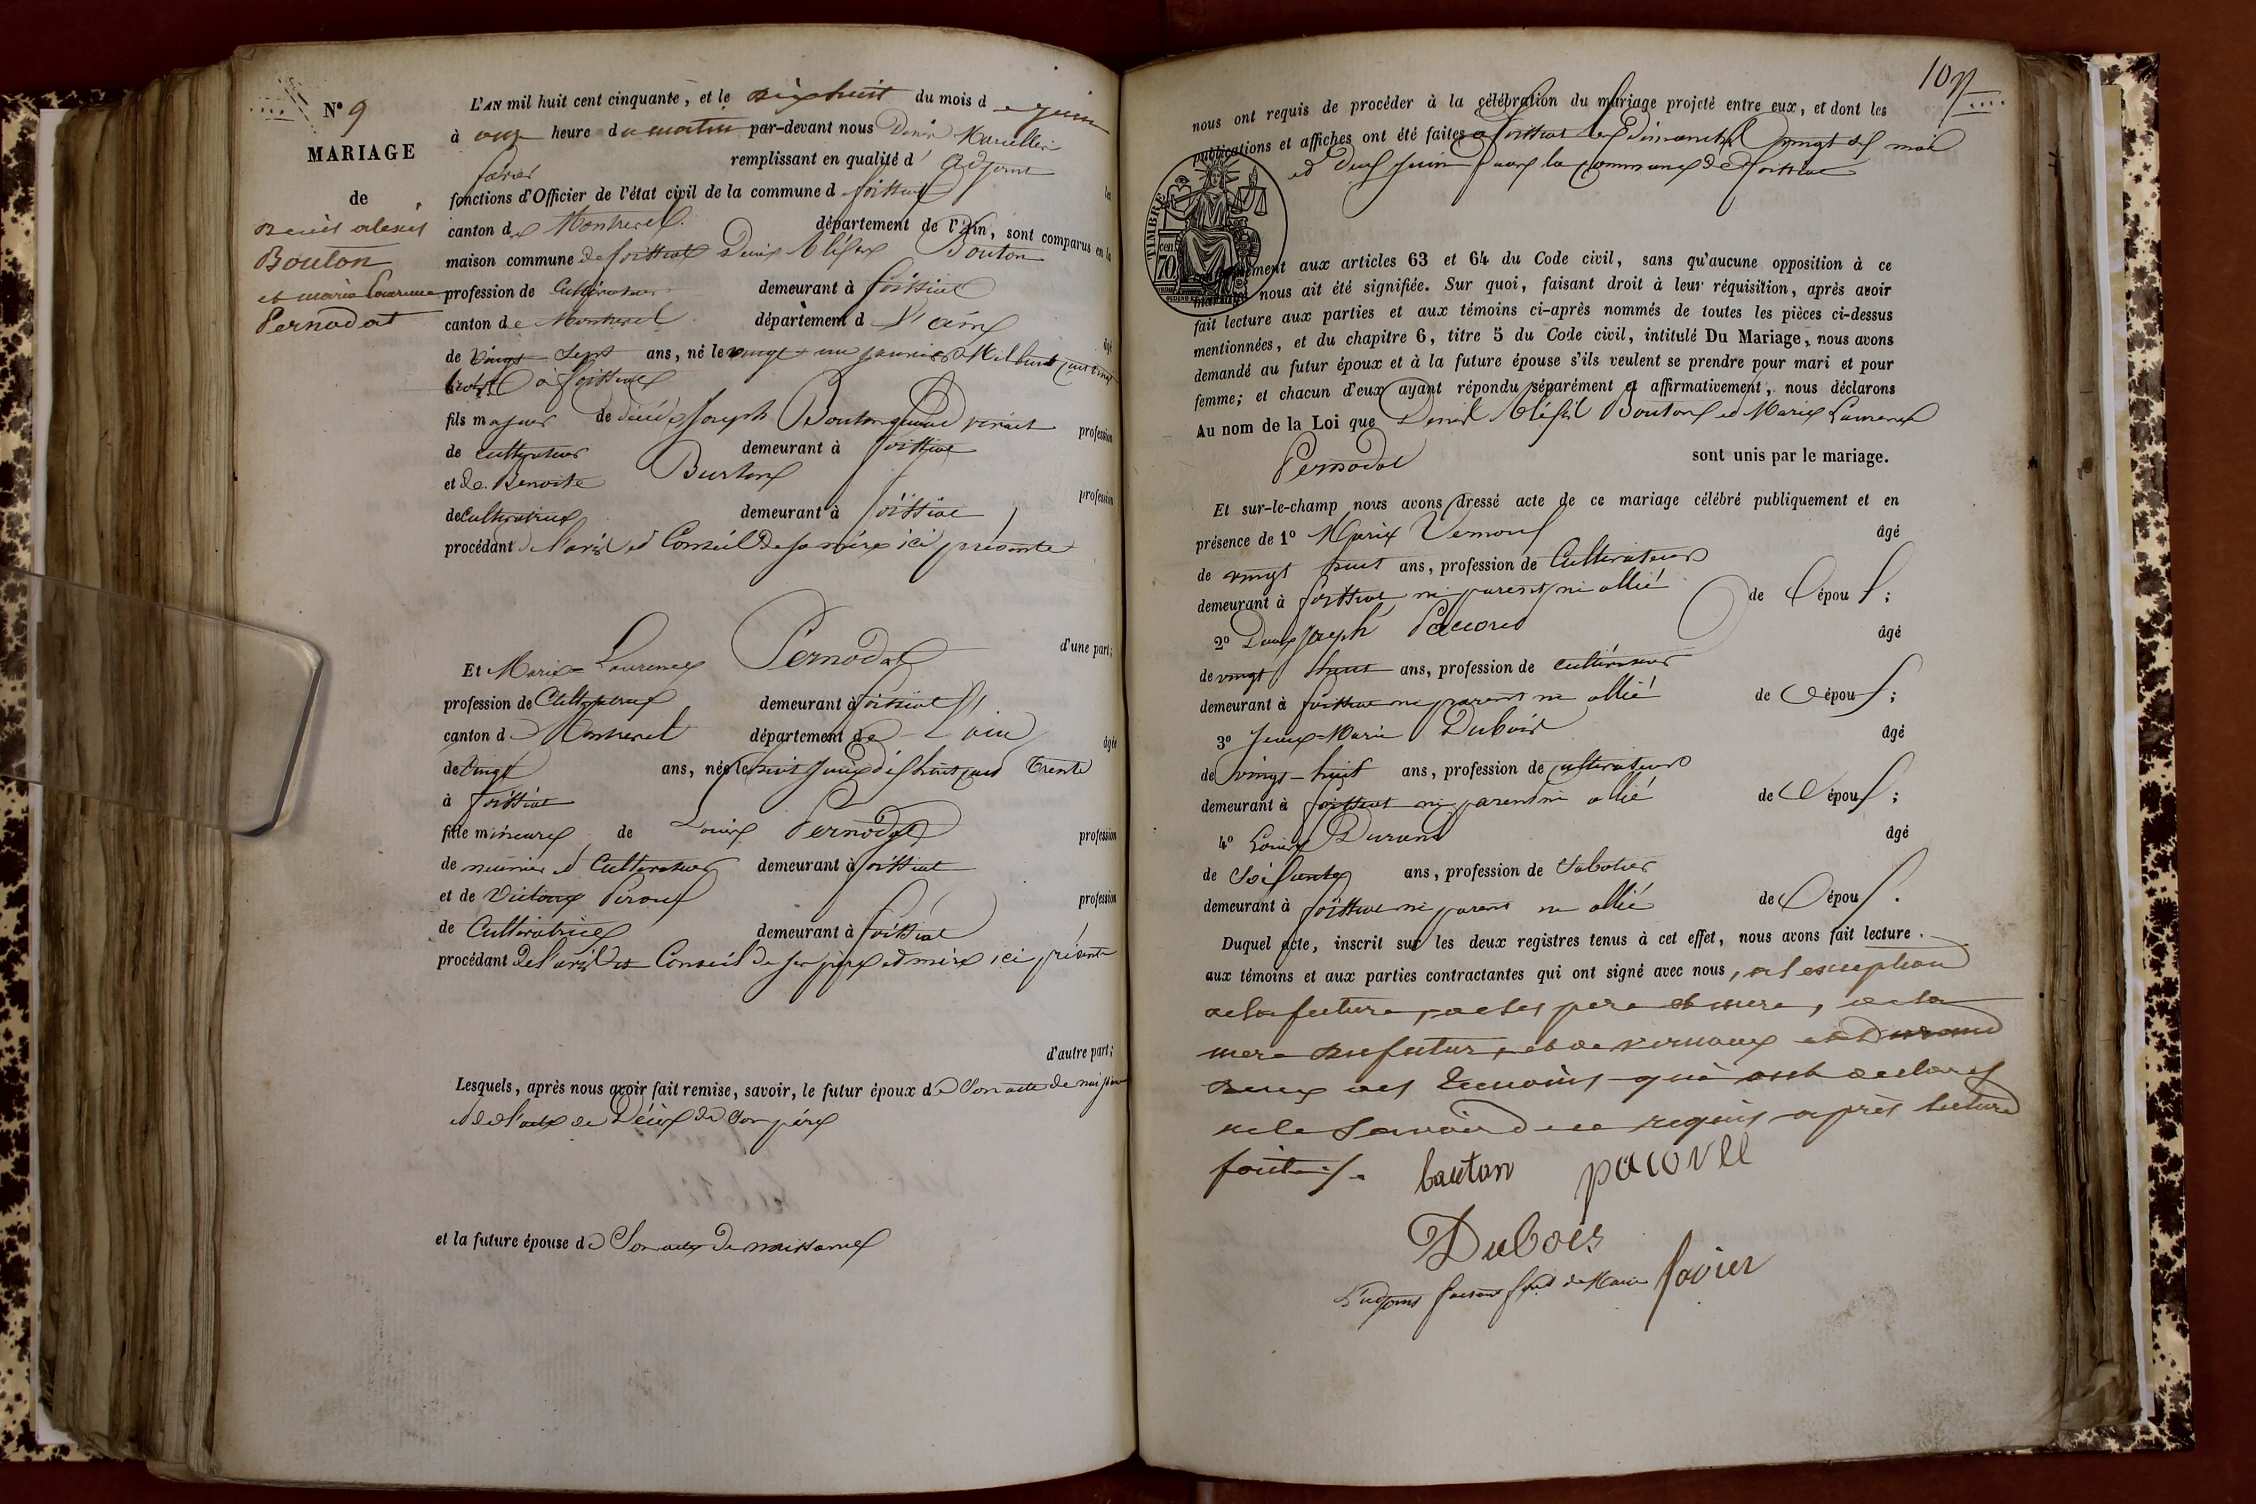 N° 9
MARIAGE
de
Denis alexis
Bouton
et marie Laurence
Pernodat
L'AN mil huit cent cinquante, et le dix huit du mois de juin
à onze heure du matin par-devant nous Denis Marcellin
favier remplissant en qualité d' Adjoint les
fonctions d'Officier de l'état civil de la commune de foissiat
canton de Montrevel département de l'Ain, sont comparus en la
maison commune de foissiat Denis Bouton
profession de Cultivateur demeurant à foissiat
canton de Montrevel département de l'ain âgé
de vingt-sept ans, né le vingt un janvier Mil huit cent vingt
trois à foissiat
fils majeur de décédé Joseph Bouton vivait profession
de cultivateur demeurant à foissiat
et de Benoite Burton profession
de Cultivatrice demeurant à foissiat
procédant de l'avis et Conseil de sa mère ici présente
d'une part;
Et Marie-Laurence Pernodat
profession de Cultivatrice demeurant à foissiat
canton de Montrevel département de l'ain âgée
de vingt ans, née le huit cent trente
à foissiat
fille mineure de Louis Pernodat profession
de meunier et Cultivateur demeurant à foissiat
et de profession
de Cultivatrice demeurant à foissiat
procédant de l'avis et Conseil de ses père et mère ici présents
d'autre part;
Lesquels, après nous avoir fait remise, savoir, le futur époux de Son acte de naissance
et de l'acte de Décès de Son père
et la future épouse de Son acte de naissance
nous ont requis de procéder à la célébration du mariage projeté entre eux, et dont les
publications et affiches ont été faites à foissiat les Dimanches vingt six mai
et deux juin dans la commune de foissiat
TIMBRE
70 cen
conformément aux articles 63 et 64 du Code civil, sans qu'aucune opposition à ce
mariage nous ait été signifiée. Sur quoi, faisant droit à leur réquisition, après avoir
fait lecture aux parties et aux témoins ci-après nommés de toutes les pièces ci-dessus
mentionnées, et du chapitre 6, titre 5 du Code civil, intitulé Du Mariage, nous avons
demandé au futur époux et à la future épouse s'ils veulent se prendre pour mari et pour
femme; et chacun d'eux ayant répondu séparément et affirmativement, nous déclarons
Au nom de la Loi que Denis Bouton et Marie Laurence
Pernodat sont unis par le mariage.
Et sur-le-champ nous avons dressé acte de ce mariage célébré publiquement et en
présence de 1° Marie âgé
de vingt huit ans, profession de Cultivateur
demeurant à foissiat ni parent ni allié de l'époux;
2° Joseph Pacoud âgé
de vingt huit ans, profession de cultivateur
demeurant à foissiat ni parent ni allié de l'époux;
3° Jean-Marie Dubois âgé
de vingt-huit ans, profession de cultivateur
demeurant à foissiat ni parent ni allié de l'époux;
4° Louis Durand âgé
de Soixante ans, profession de Sabotier
demeurant à foissiat ni parent ni allié de l'époux.
Duquel acte, inscrit sur les deux registres tenus à cet effet, nous avons fait lecture
aux témoins et aux parties contractantes qui ont signé avec nous, à l'exception
de la future, de ses père et mere, de la
mere du futur, et de et Durand
deux des temoins qui ont declaré
ne le Savoir de ce requis après lecture
faite
bauton
Dubois
L'adjoint faisant de Maire favier